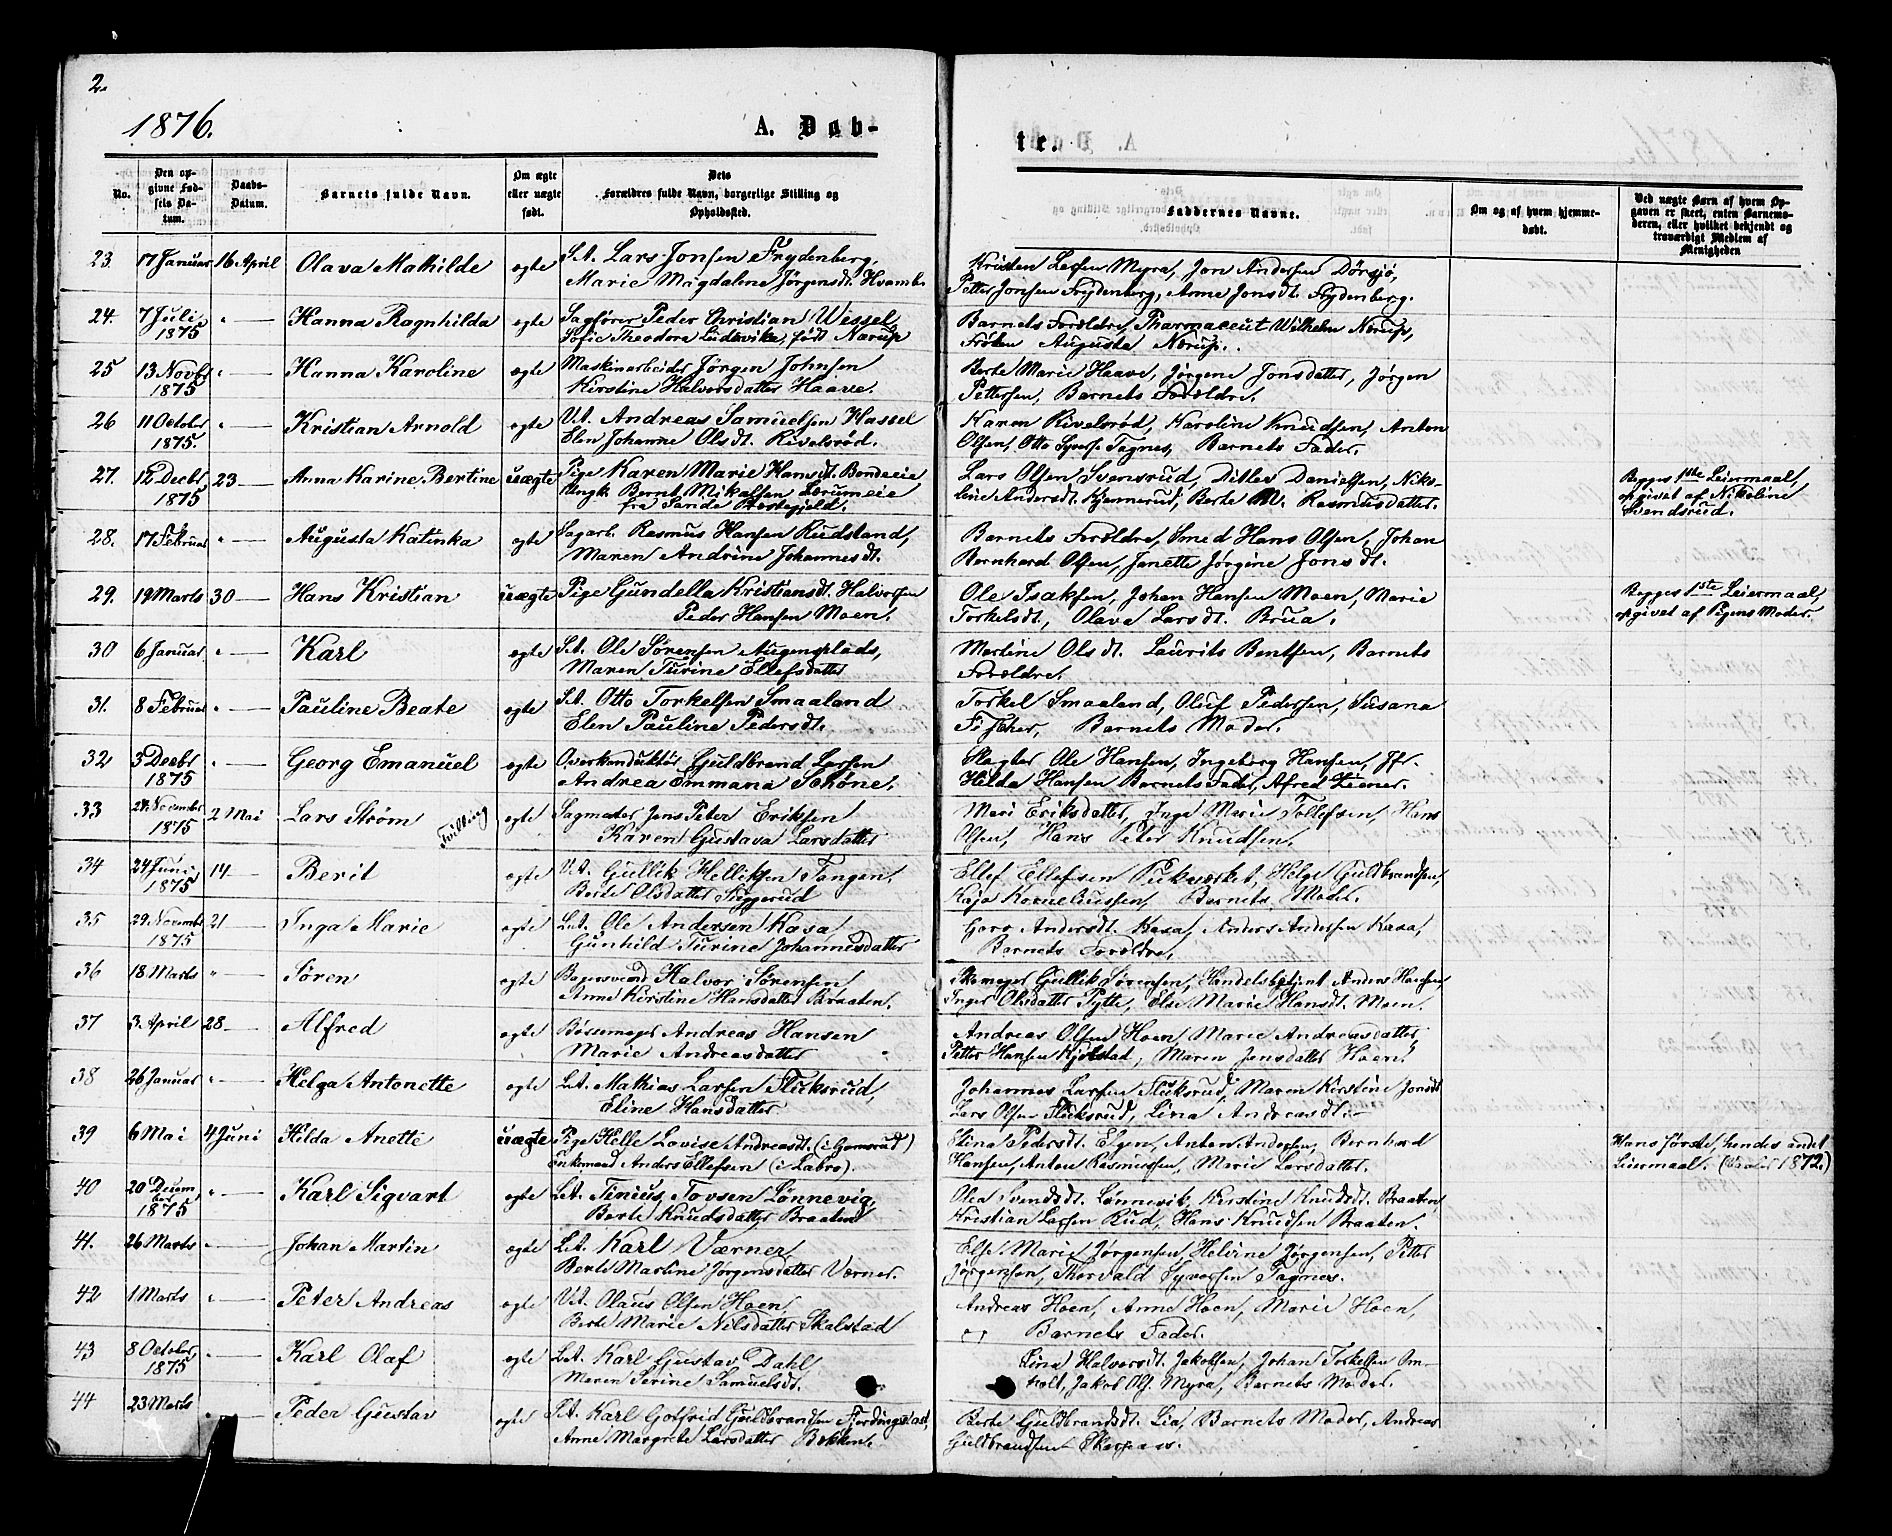 2.
1876.
A. Døb-
te.
No.
Den opgivne Fødsels Datum.
Daabs-Datum.
Barnets fulde Navn.
Om ægte eller uægte født.
Dets Forældres fulde Navn, borgerlige Stilling og Opholdsted.
Faddernes Navne.
Om og af hvem hjemmedøbt.
Ved uægte Børn af hvem Opgaven er skeet, enten Barnemoderen, eller hvilket bekjendt og troværdigt Medlem af Menigheden
23. 17 Januar 16 April Olava Mathilde ægte S.A. Lars Jonsen Frydenberg, Kristen Larsen Myra, Jon Andersen Dørsjø,
Marie Magdalene Jørgensdt. Hvamb. Petter Jonsen Frydenberg, Anne Jonsdt. Frydenberg.
24. 7 Juli " — Hanna Ragnhilda ægte Sagfører Peder Christian Wessel Barnets Forældre, Pharmaceut Wilhelm Nærup,
1875 Sofie Theodora Ludovika, født Nærup Frøken Augusta Nærup.
25 13 Novbr " — Hanna Karoline ægte Maskinarbeider Jørgen Johnsen Berte Marie Haave, Jørgine Jonsdatter, Jørgen
1875 Kirstine Halvorsdatter Haave. Pettersen, Barnets Forældre.
26 11 October " — Kristian Arnold ægte V.A. Andreas Samuelsen Hassel Karen Rivelsrød, Karoline Knudsen, Anton
1875. Elen Johanne Olsdt. Rivelsrød. Olsen, Otto Syvers. Tagnes, Barnets Fader.
27. 12 Decbr 23 — Anna Karine Bertine uægte Pige Karen Marie Hansdt. Bondeeie Lars Olsen Svensrud, Ditlev Danielsen, Niko- Begges 1ste Leiermaal,
1875 Ungk. Bernt Mikalsen Lerumeie line Andersdt. Hjennerud, Berte M. Rasmusdatter. opgivet af Nikoline
fra Sande Præstegjeld. Svendsrud.
28. 17 Februar " — Augusta Katinka ægte Sagarb. Rasmus Hansen Rudstand, Barnets Forældre, Smed Hans Olsen, Johan
Maren Andrine Johannesdt. Bernhard Olsen, Janette Jørgine Jonsdt.
29. 19 Marts 30 — Hans Kristian uægte Pige Gundella Kristiansdt. Halvorsen Ole Isaksen, Johan Hansen Moen, Marie Begges 1ste Leiermaal,
Peder Hansen Moen. Torkelsdt., Olava Larsdt. Brua. opgivet af Pigens Moder.
30 6 Januar " — Karl ægte S.A. Ole Sørensen Augensplads, Martine Olsdt. Laurits Bentsen, Barnets
Maren Turine Ellefsdatter Forældre.
31. 8 Februar " — Pauline Beate ægte S.A. Otto Torkelsen Smaaland Torkel Smaaland, Oluf Pedersen, Susana
Elen Pauline Pedersdt. Fischer, Barnets Moder.
32 3 Decbr " — Georg Emanuel ægte Overkonduktør Guldbrand Larsen Slagter Ole Hansen, Ingeborg Hansen, Jfr.
1875 Andrea Emmana Schøne. Hilda Hansen Barnets Fader, Alfred Zeiner.
33 24. November 2 Mai Lars Strøm Tvilling ægte Sagmester Jens Peter Eriksen Mari Eriksdatter, Inge Marie Tollefsen, Hans
1875 Karen Gustava Larsdatter Olsen, Hans Peter Knudsen.
34 24 Juni 14 — Berit ægte V.A. Gullik Helliksen Tangen. Ellef Ellefsen Pukværket, Helge Guldbrandsen,
1875 Berte Olsdatter Kajo Korneliussen, Barnets Moder.
35 29. Novembr 21 — Inga Marie ægte L.A. Ole Andersen Kasa Goro Andersdt. Kasa, Anders Andersen Kasa,
1875 Gunhild Turine Johannesdatter Barnets Forældre.
36 18 Marts " — Søren ægte Bøssesmed Halvor Sørensen Skomager Gullik Sørensen, Handelsbetjent Anders Hansen
Anne Kirstine Hansdatter Braaten. Inger Olsdatter Pytte, Else Marie Hansdt. Moen.
37 3. April 28 — Alfred ægte Bøssemager Andreas Hansen Andreas Olsen Hoen, Marie Andreasdatter,
Marie Andreasdatter Petter Hansen Kjølstad, Maren Jensdatter Hoen.
38 26 Januar " — Helga Antonette ægte L.A. Mathias Larsen Fluksrud, Johannes Larsen Fluksrud, Maren Kirstine Jonsdt
Eline Hansdatter Lars Olsen Fluksrud, Lina Andreasdt.
39 6 Mai 4 Juni Hilda Anette uægte Pige Helle Lovise Andreasdt. (i Gomsrud) Stina Pedersdt. Elgen, Anton Andersen, Bernhard Hans første, hendes andet
Enkemand Anders Ellefsen (i Labro). Hansen, Anton Rasmussen, Marie Larsdatter. Leiermaal. 1872.)
40 20 December " — Karl Sigvart ægte L.A. Tinius Tovsen Lønnevig, Olea Svendsdt. Lønnevik, Kirstine Knudsdt. Braaten,
1875 Berte Knudsdatter Braaten Kristian Larsen Rud, Hans Knudsen Braaten.
41. 26 Marts " — Johan Martin ægte L.A. Karl Værner, Else Marie Jørgensen, Helvine Jørgensen, Petter
Berte Martine Jørgensdatter Værner. Jørgensen, Thorvald Syversen Tagnes.
42 1 Marts " — Peter Andreas ægte V.A. Olaus Olsen Hoen, Andreas Hoen, Anne Hoen, Marie Hoen,
Berte Marie Nilsdatter Skalstad Barnets Fader.
43 8 October " — Karl Olaf ægte L.A. Karl Gustav Dahl, Lina Halvorsdt. Jakobsen, Johan Torkelsen Om-
1875 Maren Serine Samuelsdt. holt, Jakob Ols. Myra, Barnets Moder.
44 23 Marts " — Peder Gustav ægte S.A. Karl Gotfrid Guldbrandsen Fjordingsplads, Berte Guldbrandsdt. Lia, Barnets Moder, Andreas
Anne Margrete Larsdatter Bakken. Guldbrandsen